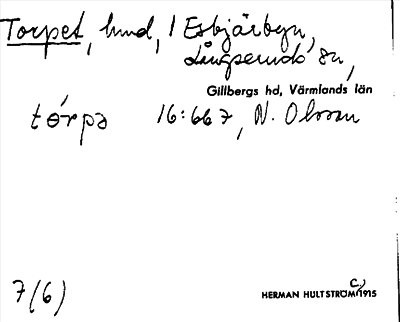 Torpet, lund, / Esbjärbyn,
Långseruds sn,
Gillbergs hd, Värmlands län
tórpə 16:667, N. Olsson
7(6)
HERMAN HULTSTRÖM C) 1915